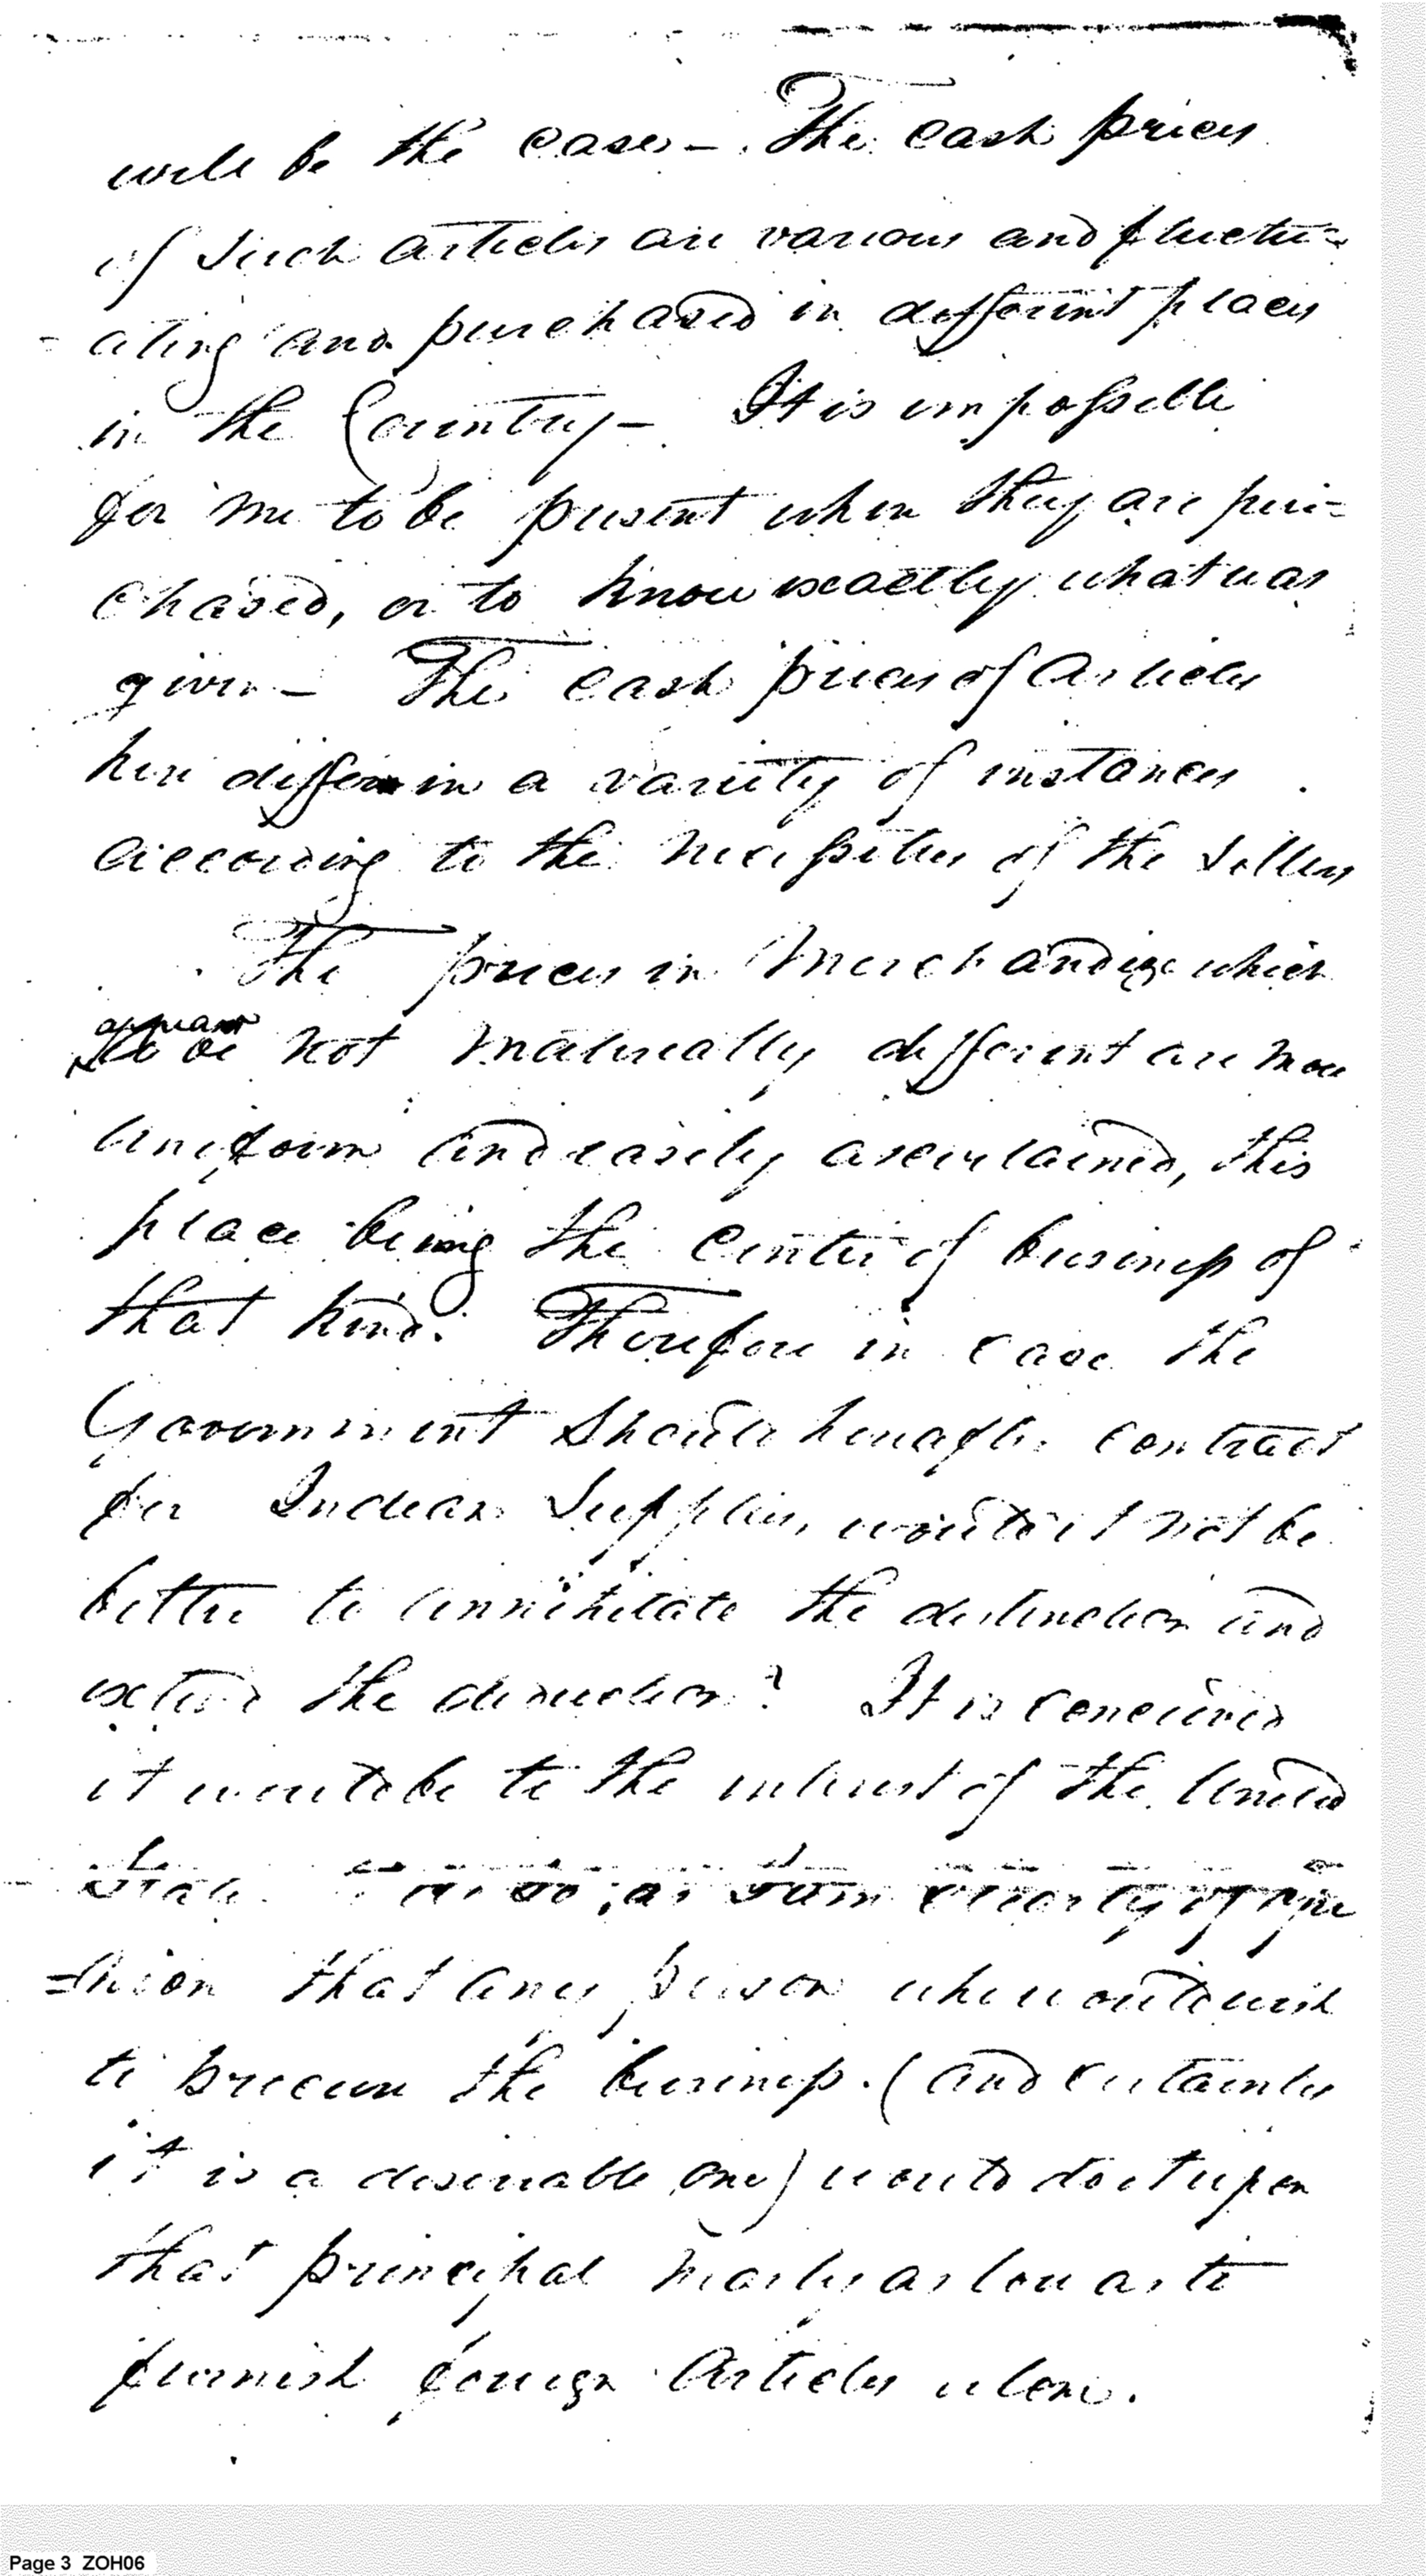 will be the case – The cash prices
of Such articles are various and fluctu=
ating and purchased in different places
in the Country – It is impossible
for me to be present when they are pur=
chased, or to know exactly what was
given – The cash prices of Articles
here differ in a variety of instances
according to the necessities of the Sellers
The prices in Merchandize which
appear
to be not materially different are more
uniform and easily ascertained, this
place being the Center of business of
that kind. Therefore in case the
Government Should hereafter contract
for Indian Supplies, would it not be
better to annihilate the distinction and
extend the deduction? It is conceived
it would be to the interest of the United
State to do so, as I am clearly of opi
=nion that any person who would wish
to procure the business. (and certainly
it is a desireable one) would do it upon
that principal nearly as low as to
furnish foreign Articles alone.
Page 3 ZOH06